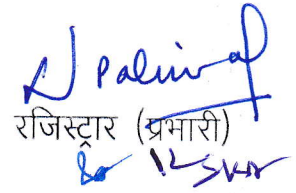 N Paliwal
रजिस्ट्रार (प्रभारी)